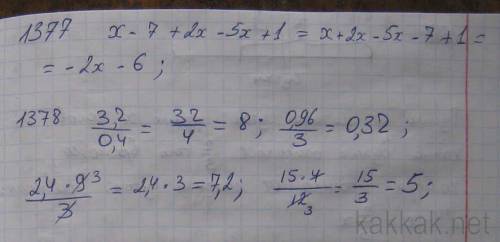 1377 x - 7 + 2x - 5x + 1 = x + 2x - 5x - 7 + 1 =
= - 2x - 6 ;
1378 3,2/0,4 = 32/4 = 8 ; 0,96/3 = 0,32 ;
2,4 · 9³/3 = 2,4 · 3 = 7,2 ; 15 · 4/12₃ = 15/3 = 5 ;
kakkak.net